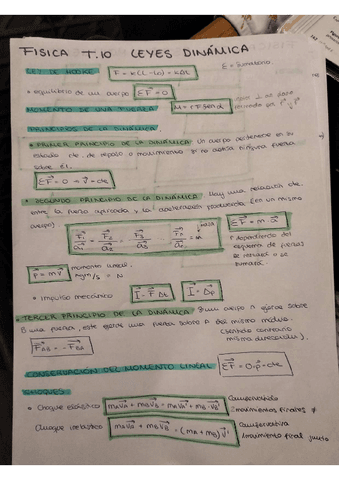 FISICA T.10 LEYES DINÁMICA
LEY DE HOOKE F = k(L - L₀) = kΔL
• equilibrio de un cuerpo ΣF = 0
MOMENTO DE UNA FUERZA M = r·F·senα
PRINCIPIOS DE LA DINÁMICA
• PRIMER PRINCIPIO DE LA DINÁMICA Un cuerpo permanece en su
estado de reposo o movimiento si no actúa ninguna fuerza
sobre él.
ΣF = 0 → v = cte
• SEGUNDO PRINCIPIO DE LA DINÁMICA Hay una relación cte.
entre la fuerza aplicada y la aceleración producida (en un mismo
cuerpo) F₁/a₁ = F₂/a₂ = F₃/a₃ = = m masa
ΣF = m·a
dependiendo del
esquema de fuerzas
se restará o se
sumará
p = m·v momento lineal
kgm/s = N
• Impulso mecánico I = F·Δt I = Δp
• TERCER PRINCIPIO DE LA DINÁMICA Si un cuerpo A ejerce sobre
B una fuerza, este ejerce una fuerza sobre A del mismo módulo
(sentido contrario
misma dirección).
F_AB = -F_BA
CONSERVACIÓN DEL MOMENTO LINEAL ΣF = 0 p = cte
CHOQUES
• Choque elástico m_A v_A + m_B v_B = m_A v_A' + m_B · v_B'
movimientos finales ≠
Choque inelástico m_A v_A + m_B v_B = (m_A + m_B) v'
movimiento final junto